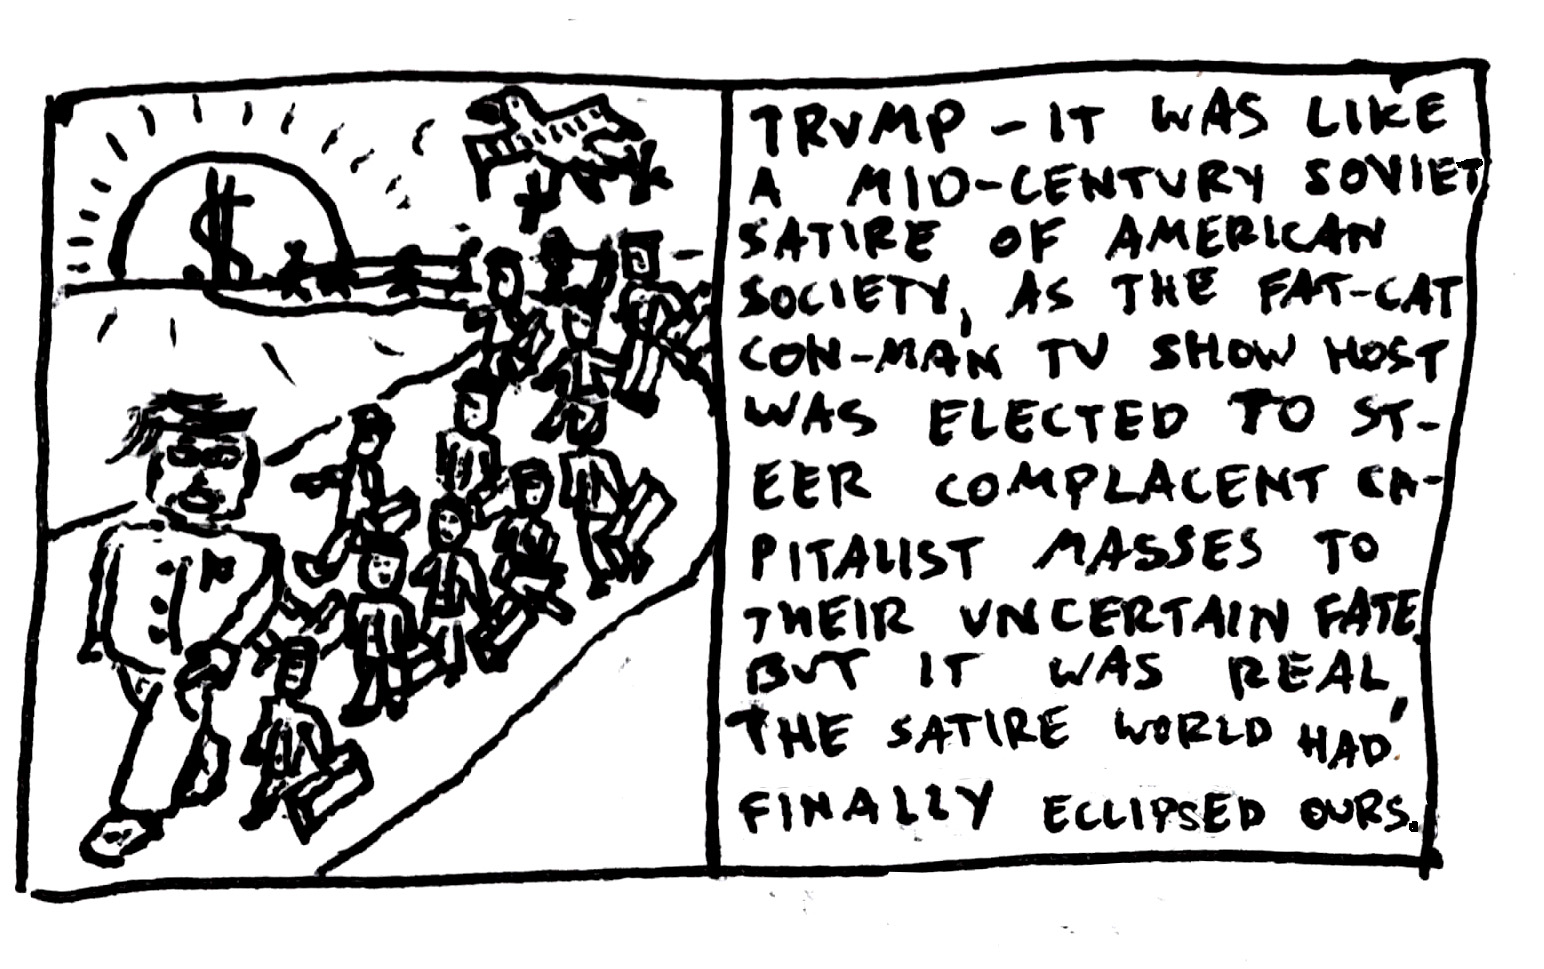 $
TRUMP - IT WAS LIKE
A MID-CENTURY SOVIET
SATIRE OF AMERICAN
SOCIETY, AS THE FAT-CAT
CON-MAN TV SHOW HOST
WAS ELECTED TO ST-
EER COMPLACENT CA-
PITALIST MASSES TO
THEIR UNCERTAIN FATE.
BUT IT WAS REAL,
THE SATIRE WORLD HAD
FINALLY ECLIPSED OURS.